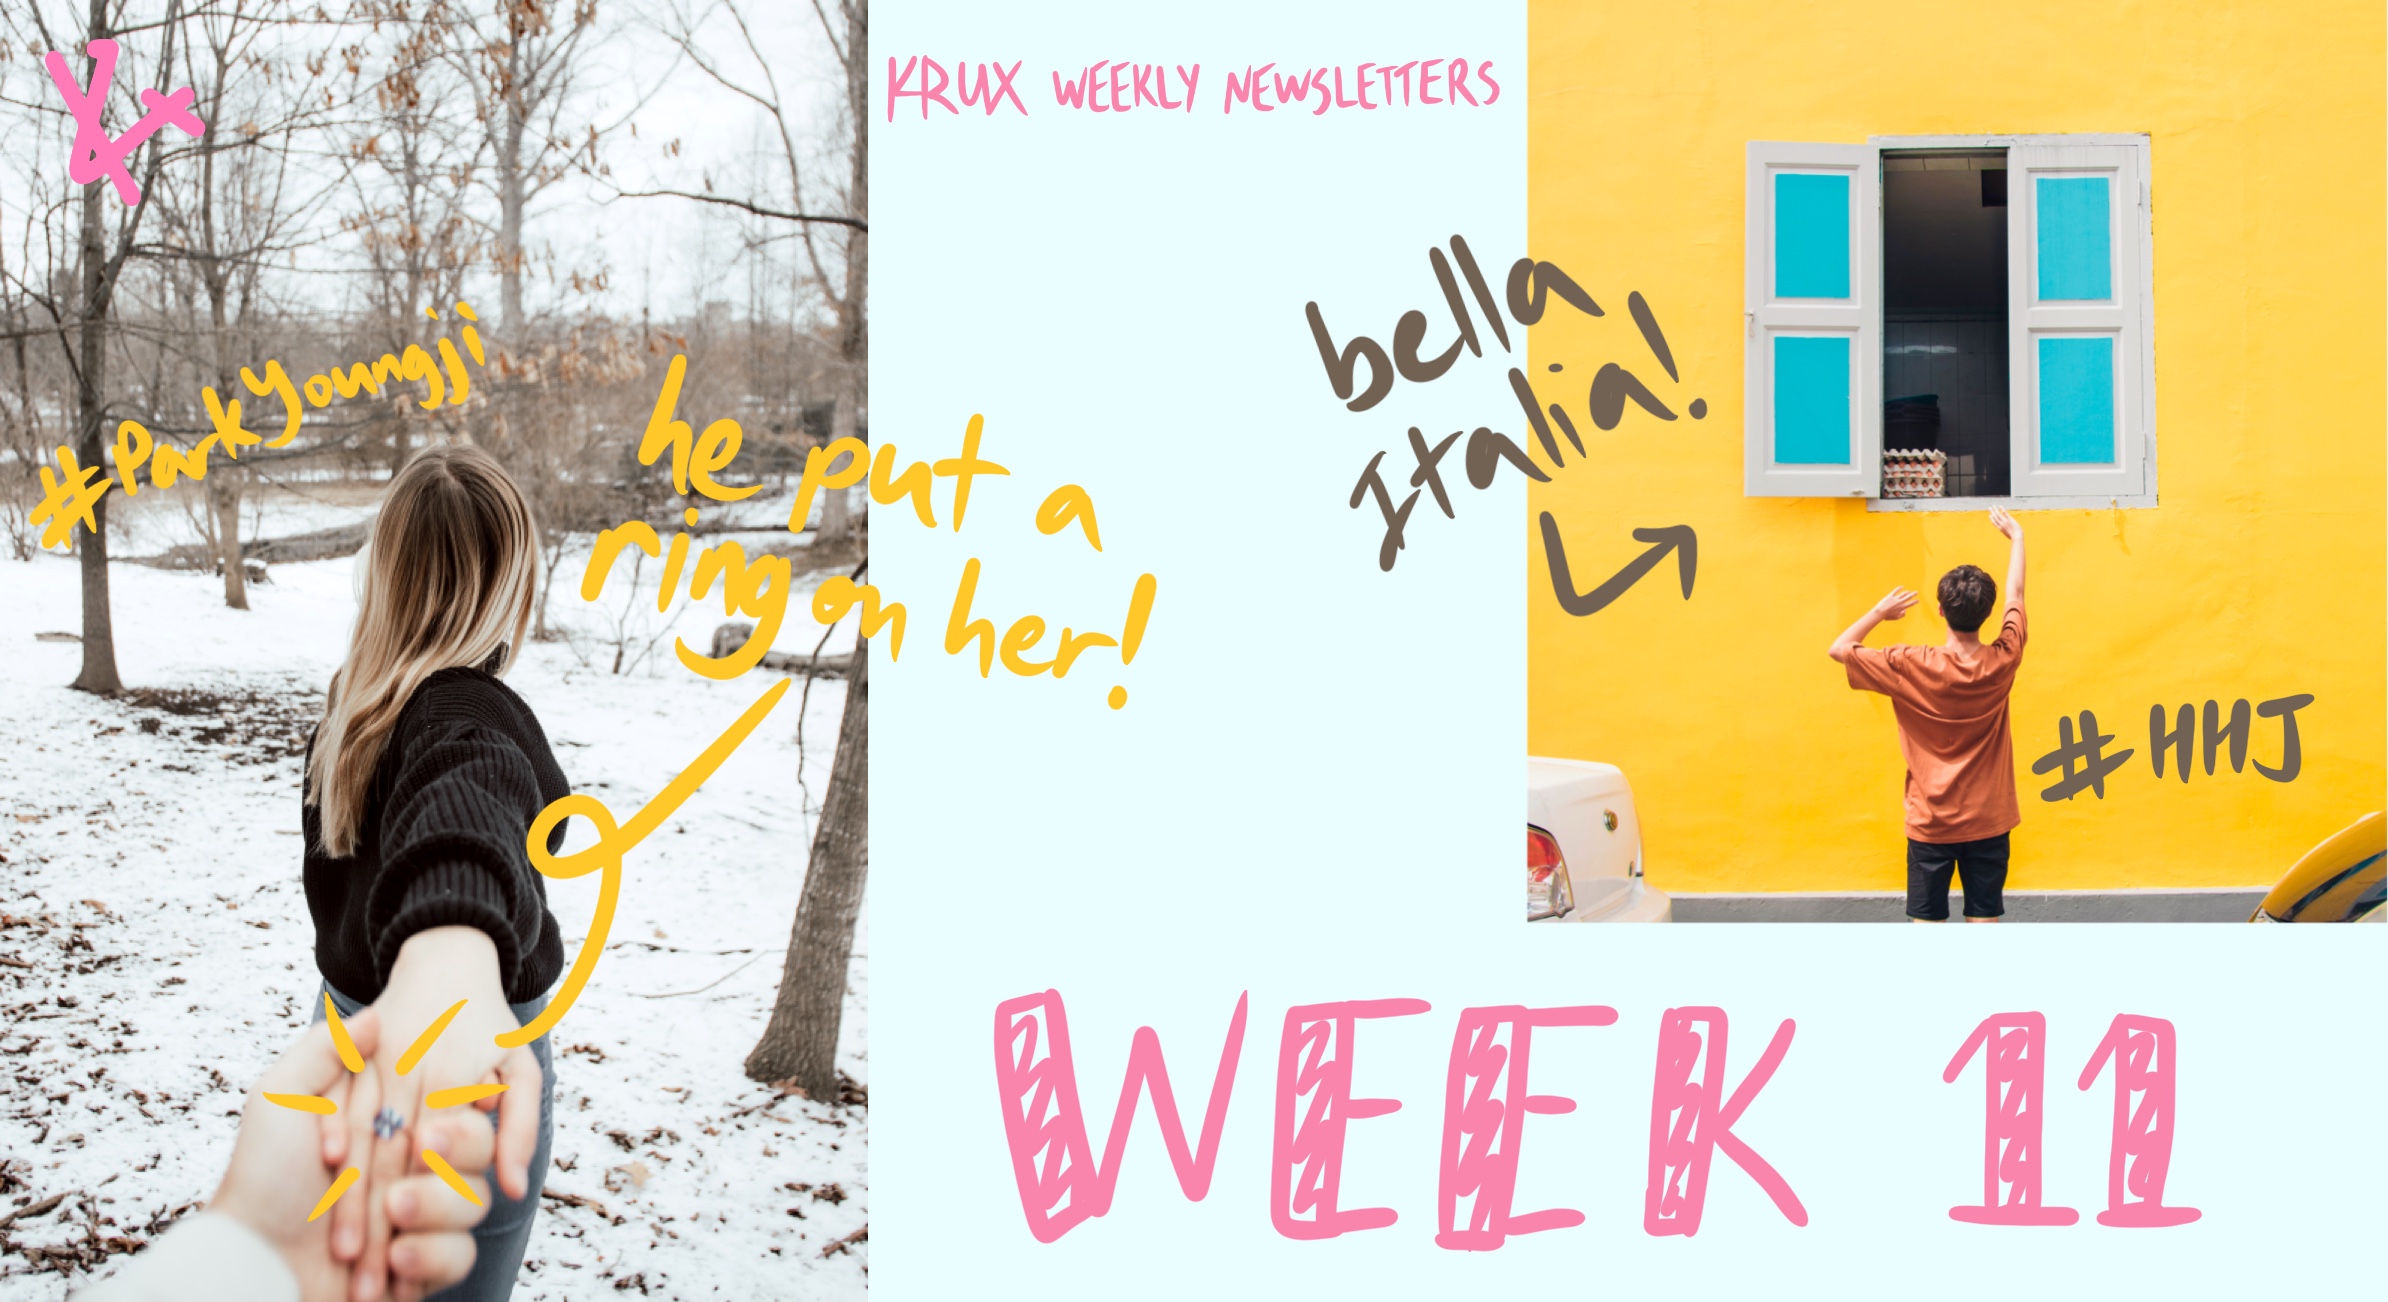 KRUX WEEKLY NEWSLETTERS
#ParkYoungji
he put a
ring on her!
bella
Italia!
#HHJ
WEEK 11